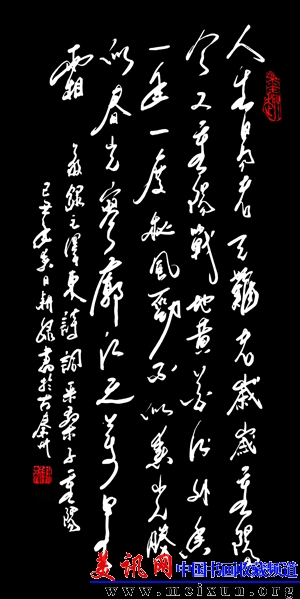 人生易老天難老歲歲重陽
今又重陽戰地黃花分外香
一年一度秋風勁不似春光勝
似春光寥廓江天万里
霜
錄毛澤東詩詞采桑子重陽
己丑年冬日耕 書於古秦州
美讯网 中国书画收藏频道
www.meixun.org